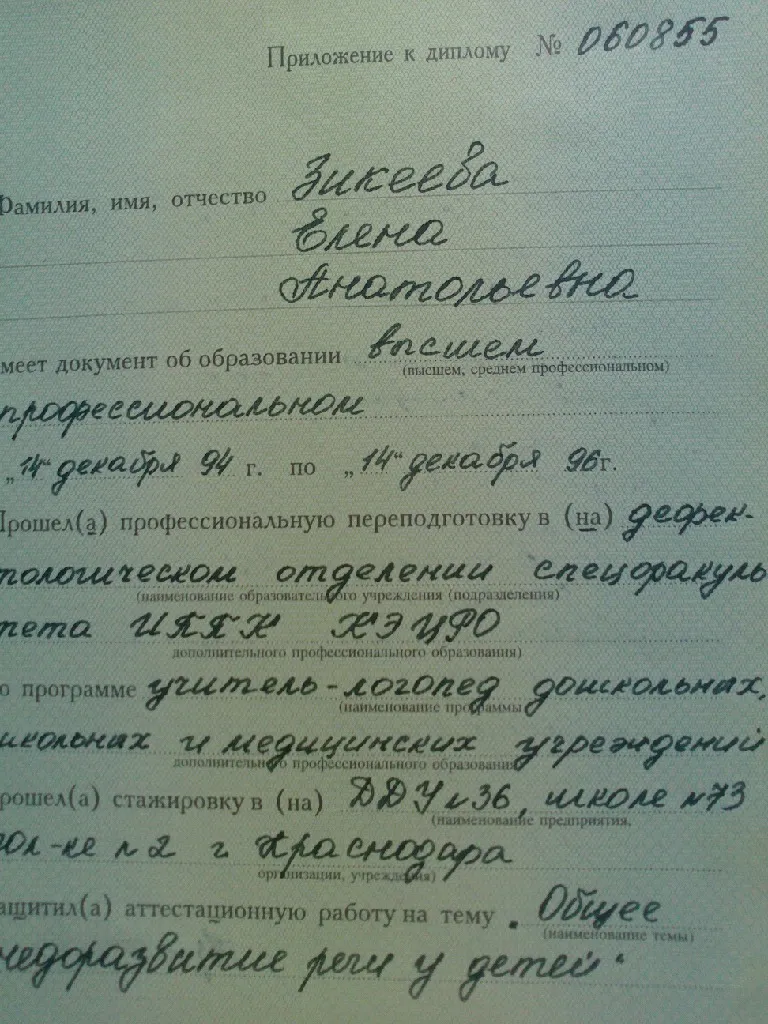 Приложение к диплому № 060855
Фамилия, имя, отчество Зикеева
Елена
Анатольевна
меет документ об образовании высшем
(высшем, среднем профессиональном)
профессиональном
„14“ декабря 94 г. по „14“ декабря 96г.
Прошел(а) профессиональную переподготовку в (на) дефек-
тологическом отделении спецфакуль
(наименование образовательного учреждения (подразделения)
тета ИППК КЭЦРО
дополнительного профессионального образования)
о программе учитель-логопед дошкольных,
(наименование программы
школьных и медицинских учреждений
дополнительного профессионального образования
рошел(а) стажировку в (на) ДДУ №36, школе №73
(наименование предприятия,
пол-ке №2 г Краснодара
организации, учреждения)
ащитил(а) аттестационную работу на тему „Общее
(наименование темы)
недоразвитие речи у детей“